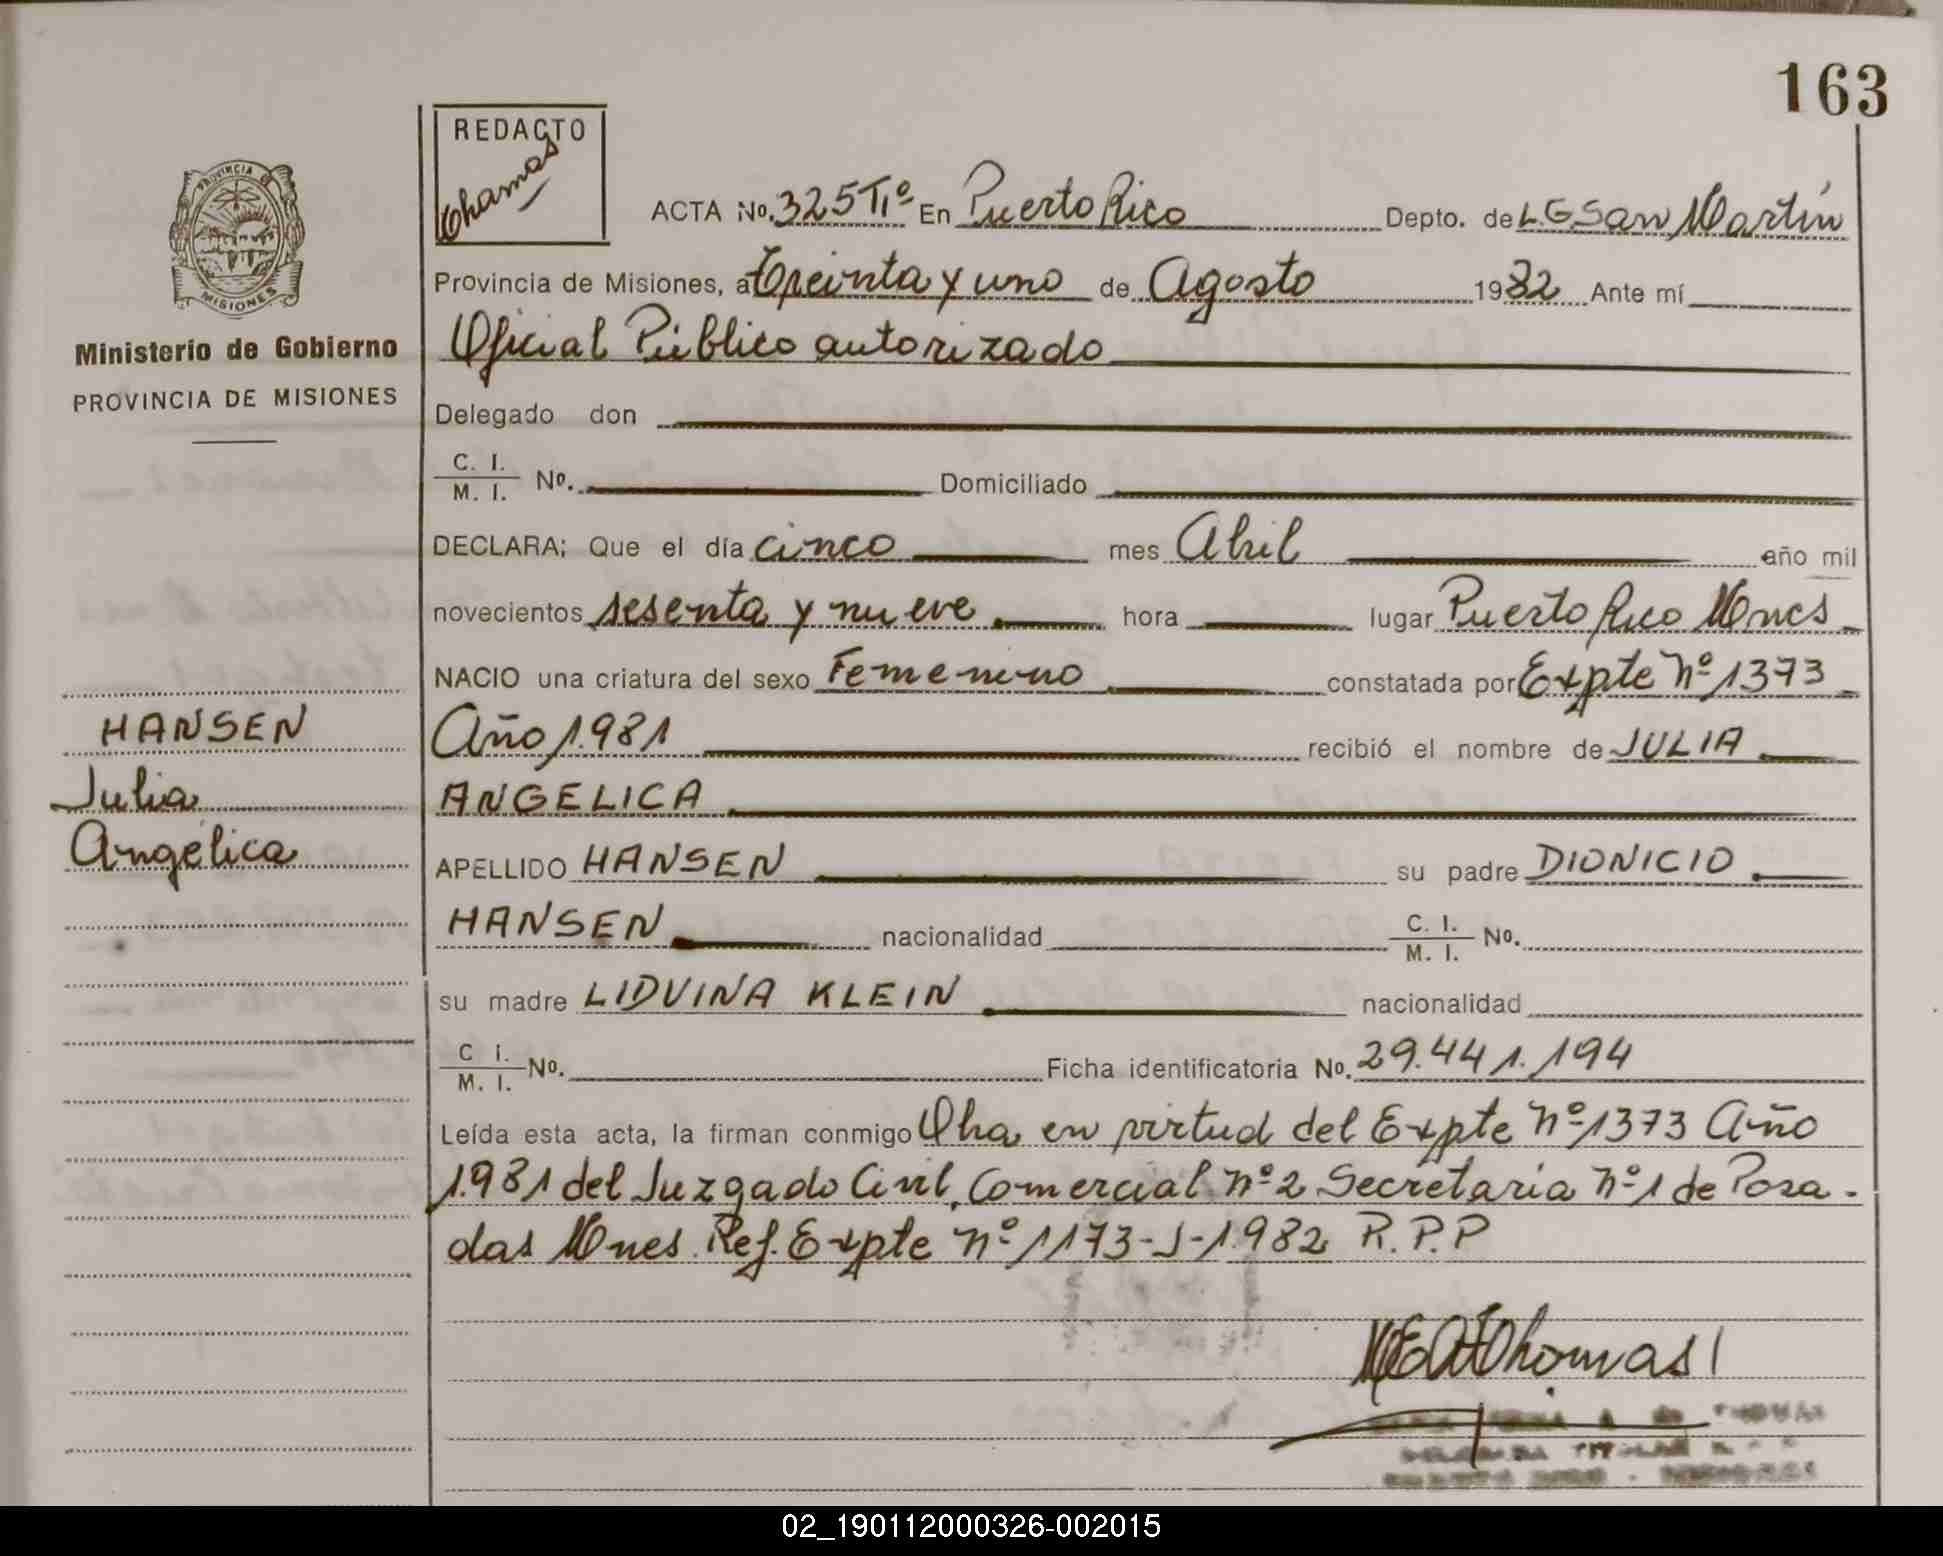 163
REDACTO
Thomas
PROVINCIA DE
MISIONES
Ministerio de Gobierno
PROVINCIA DE MISIONES
ACTA No. 325 Tº En Puerto Rico Depto. de L.G San Martín
Provincia de Misiones, a Treinta y uno de Agosto 1982 Ante mí
Oficial Público autorizado
Delegado don
C. I.
M. I. Nº. Domiciliado
DECLARA; Que el día cinco mes Abril año mil
novecientos sesenta y nueve hora lugar Puerto Rico Mnes
NACIO una criatura del sexo Femenino constatada por Expte Nº 1373
Año 1.981 recibió el nombre de JULIA
ANGELICA
HANSEN
Julia
Angélica
APELLIDO HANSEN su padre DIONICIO
HANSEN nacionalidad C. I.
M. I. Nº.
su madre LIDVINA KLEIN nacionalidad
C I.
M. I. Nº. Ficha identificatoria No. 29.441.194
Leída esta acta, la firman conmigo Oha en virtud del Expte Nº 1373 Año
1.981 del Juzgado Civil, Comercial Nº 2 Secretaria Nº 1 de Posa-
das Mnes. Ref. Expte Nº 1173-J-1.982 R.P.P
Thomas
02_190112000326-002015